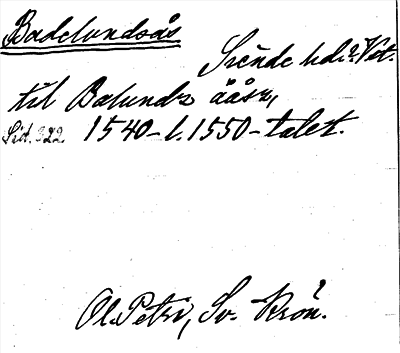 Badelundsås
Siende hd? Vst.
til Balunds ååsz,
Sid. 322. 1540- l. 1550-talet.
Ol. Petri, Sv. Krön.